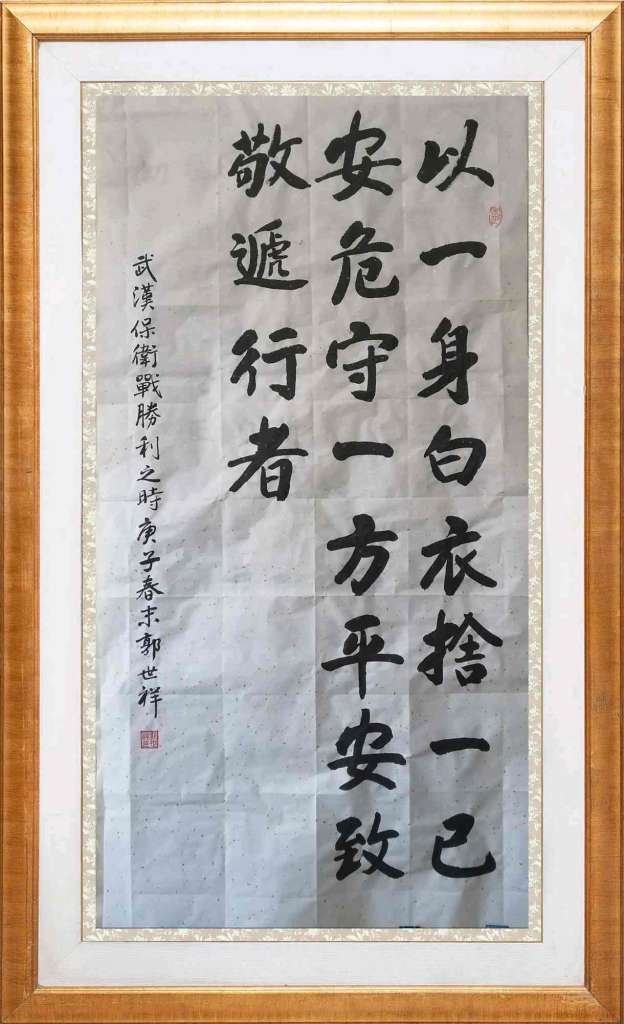 以一身白衣捨一已
安危守一方平安致
敬遞行者
武漢保衛戰勝利之時庚子春末郭世祥